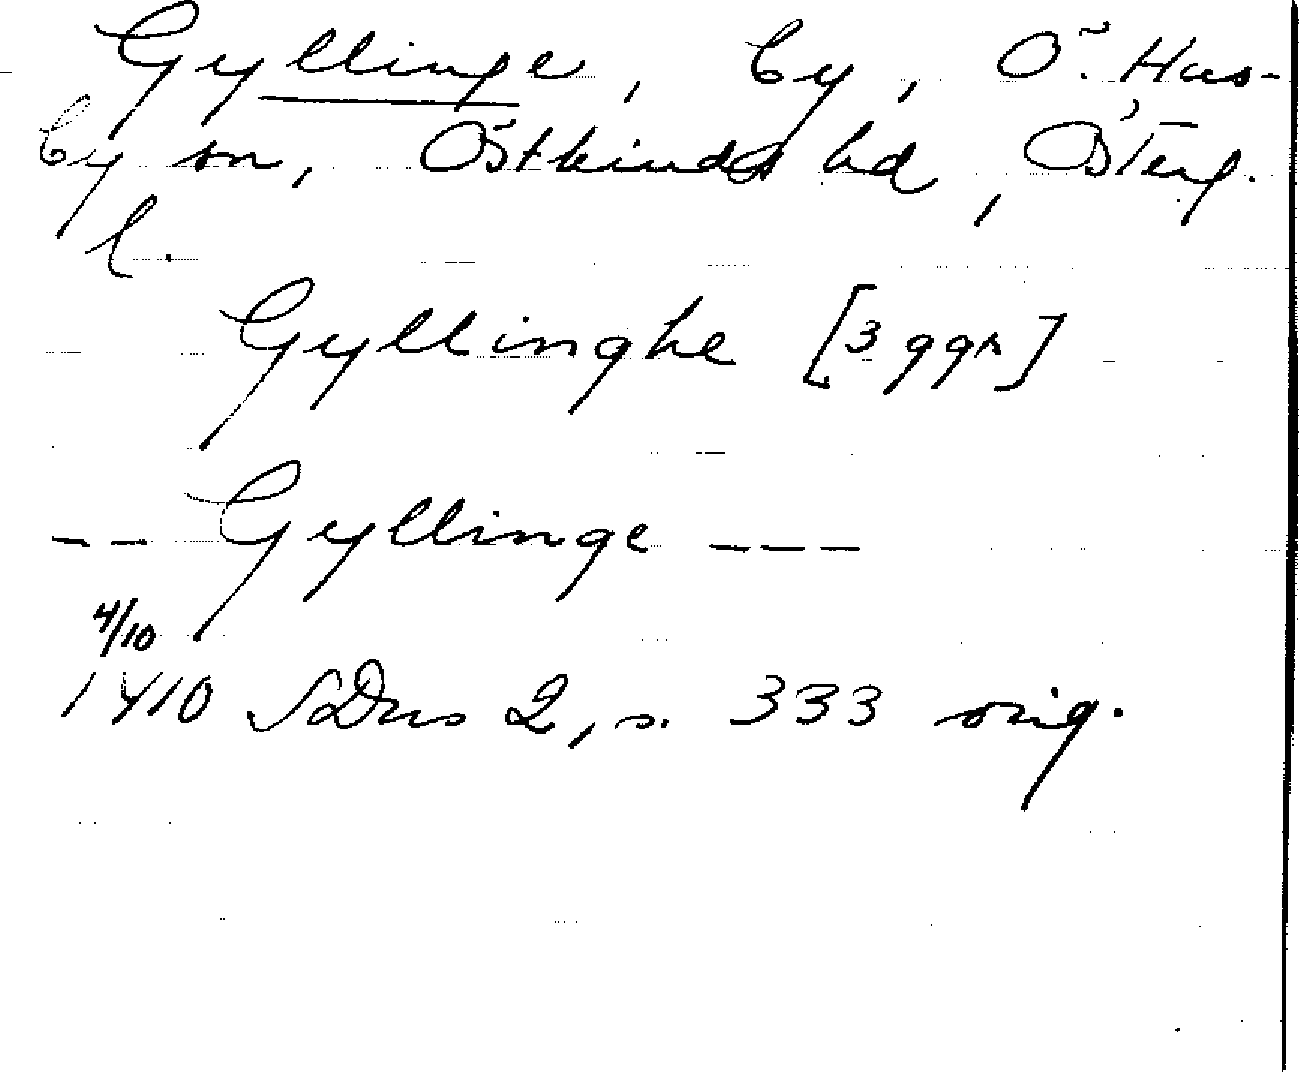 Gyllinge, by, Ö. Hus-
by sn, Östkinds hd, Österg.
l.
Gyllinghe [3 ggr]
-- Gyllinge ---
4/10
1410 SDns 2, s. 333 orig.